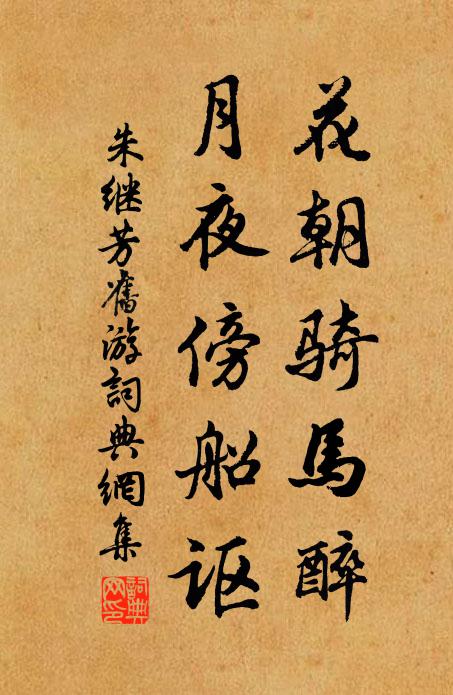 花朝騎馬醉
月夜傍船讴
朱继芳舊游詞典網集
詞典网印